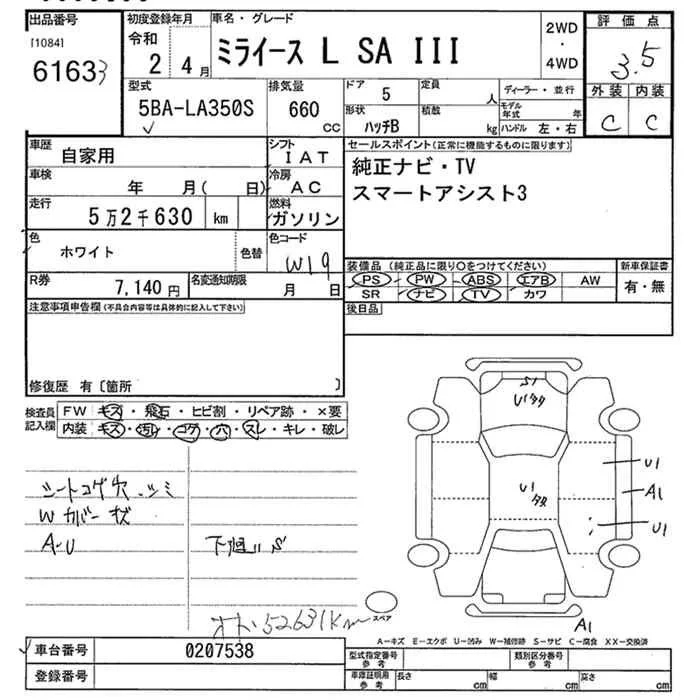 出品番号 初度登録年月 車名・グレード 評価点
[1084] 令和
61633 2 4月 ミライース L SA III 2WD・4WD 3.5
型式 排気量 ドア 5 定員 人 ディーラー・並行 外装 内装
5BA-LA350S 660 CC 形状 ハッチB 積載 kg モデル年式 年 ハンドル 左・右 C C
車歴 自家用 シフト IAT セールスポイント(正常に機能するものに限ります)
車検 年 月( 日) 冷房 AC 純正ナビ・TV
走行 5万2千630 km 燃料 ガソリン スマートアシスト3
色 ホワイト 色替 色コード W19
装備品 (純正品に限り○をつけてください) 新車保証書
R券 7,140円 名変通知期限 月 日 PS PW ABS エアB AW 有・無
SR ナビ TV カワ
注意事項申告欄(不具合内容等は具体的に記入して下さい) 後日品
修復歴 有〔箇所 〕
検査員記入欄 FW キズ・飛石・ヒビ割・リペア跡・×要
内装 キズ・汚レ・コゲ・穴・スレ・キレ・破レ
S1
U1タタ
U1
タタ
U1
A1
U1
シートコゲ穴.シミ
Wカバーキズ
A-U 下廻りS
オド52631Km
スペア
A1
A―キズ E―エクボ U―凹み W―補修跡 S―サビ C―腐食 XX―交換済
車台番号 0207538 型式指定番号参考 類別区分番号参考
登録番号 車庫証明用参考 長さ cm 幅 cm 高さ cm